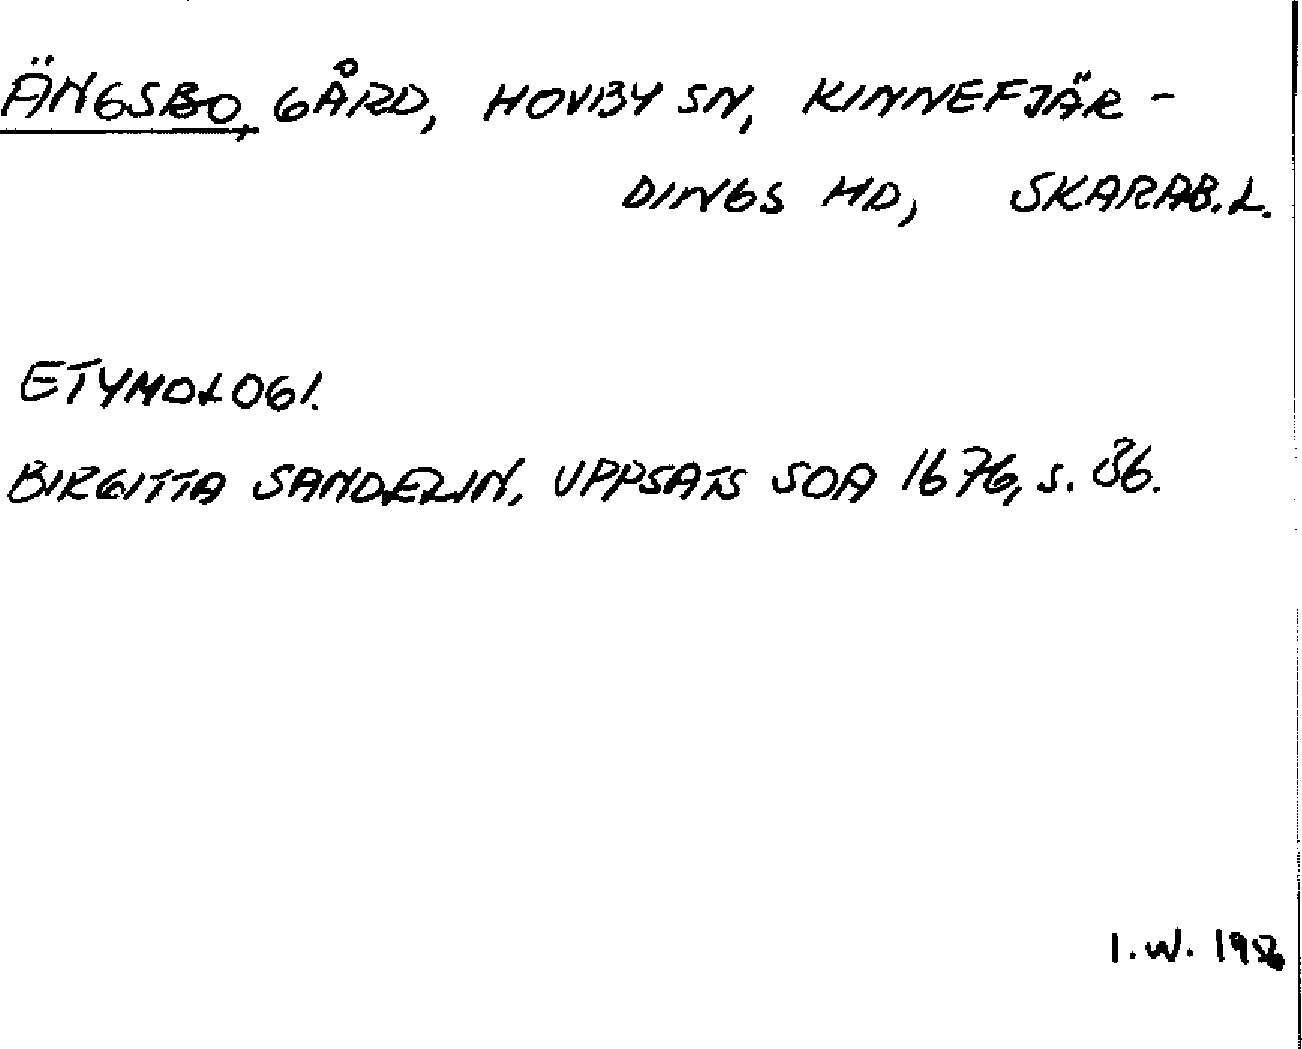 ÄNGSBO, GÅRD, HOVBY SN, KINNEFJÄR-
DINGS HD, SKARAB.L.
ETYMOLOGI.
BIRGITTA SANDELIN, UPPSATS SOA 1676, S. 36.
I.W.